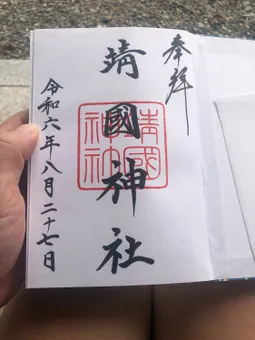 奉拜
靖國神社
靖國神社
令和六年八月二十七日